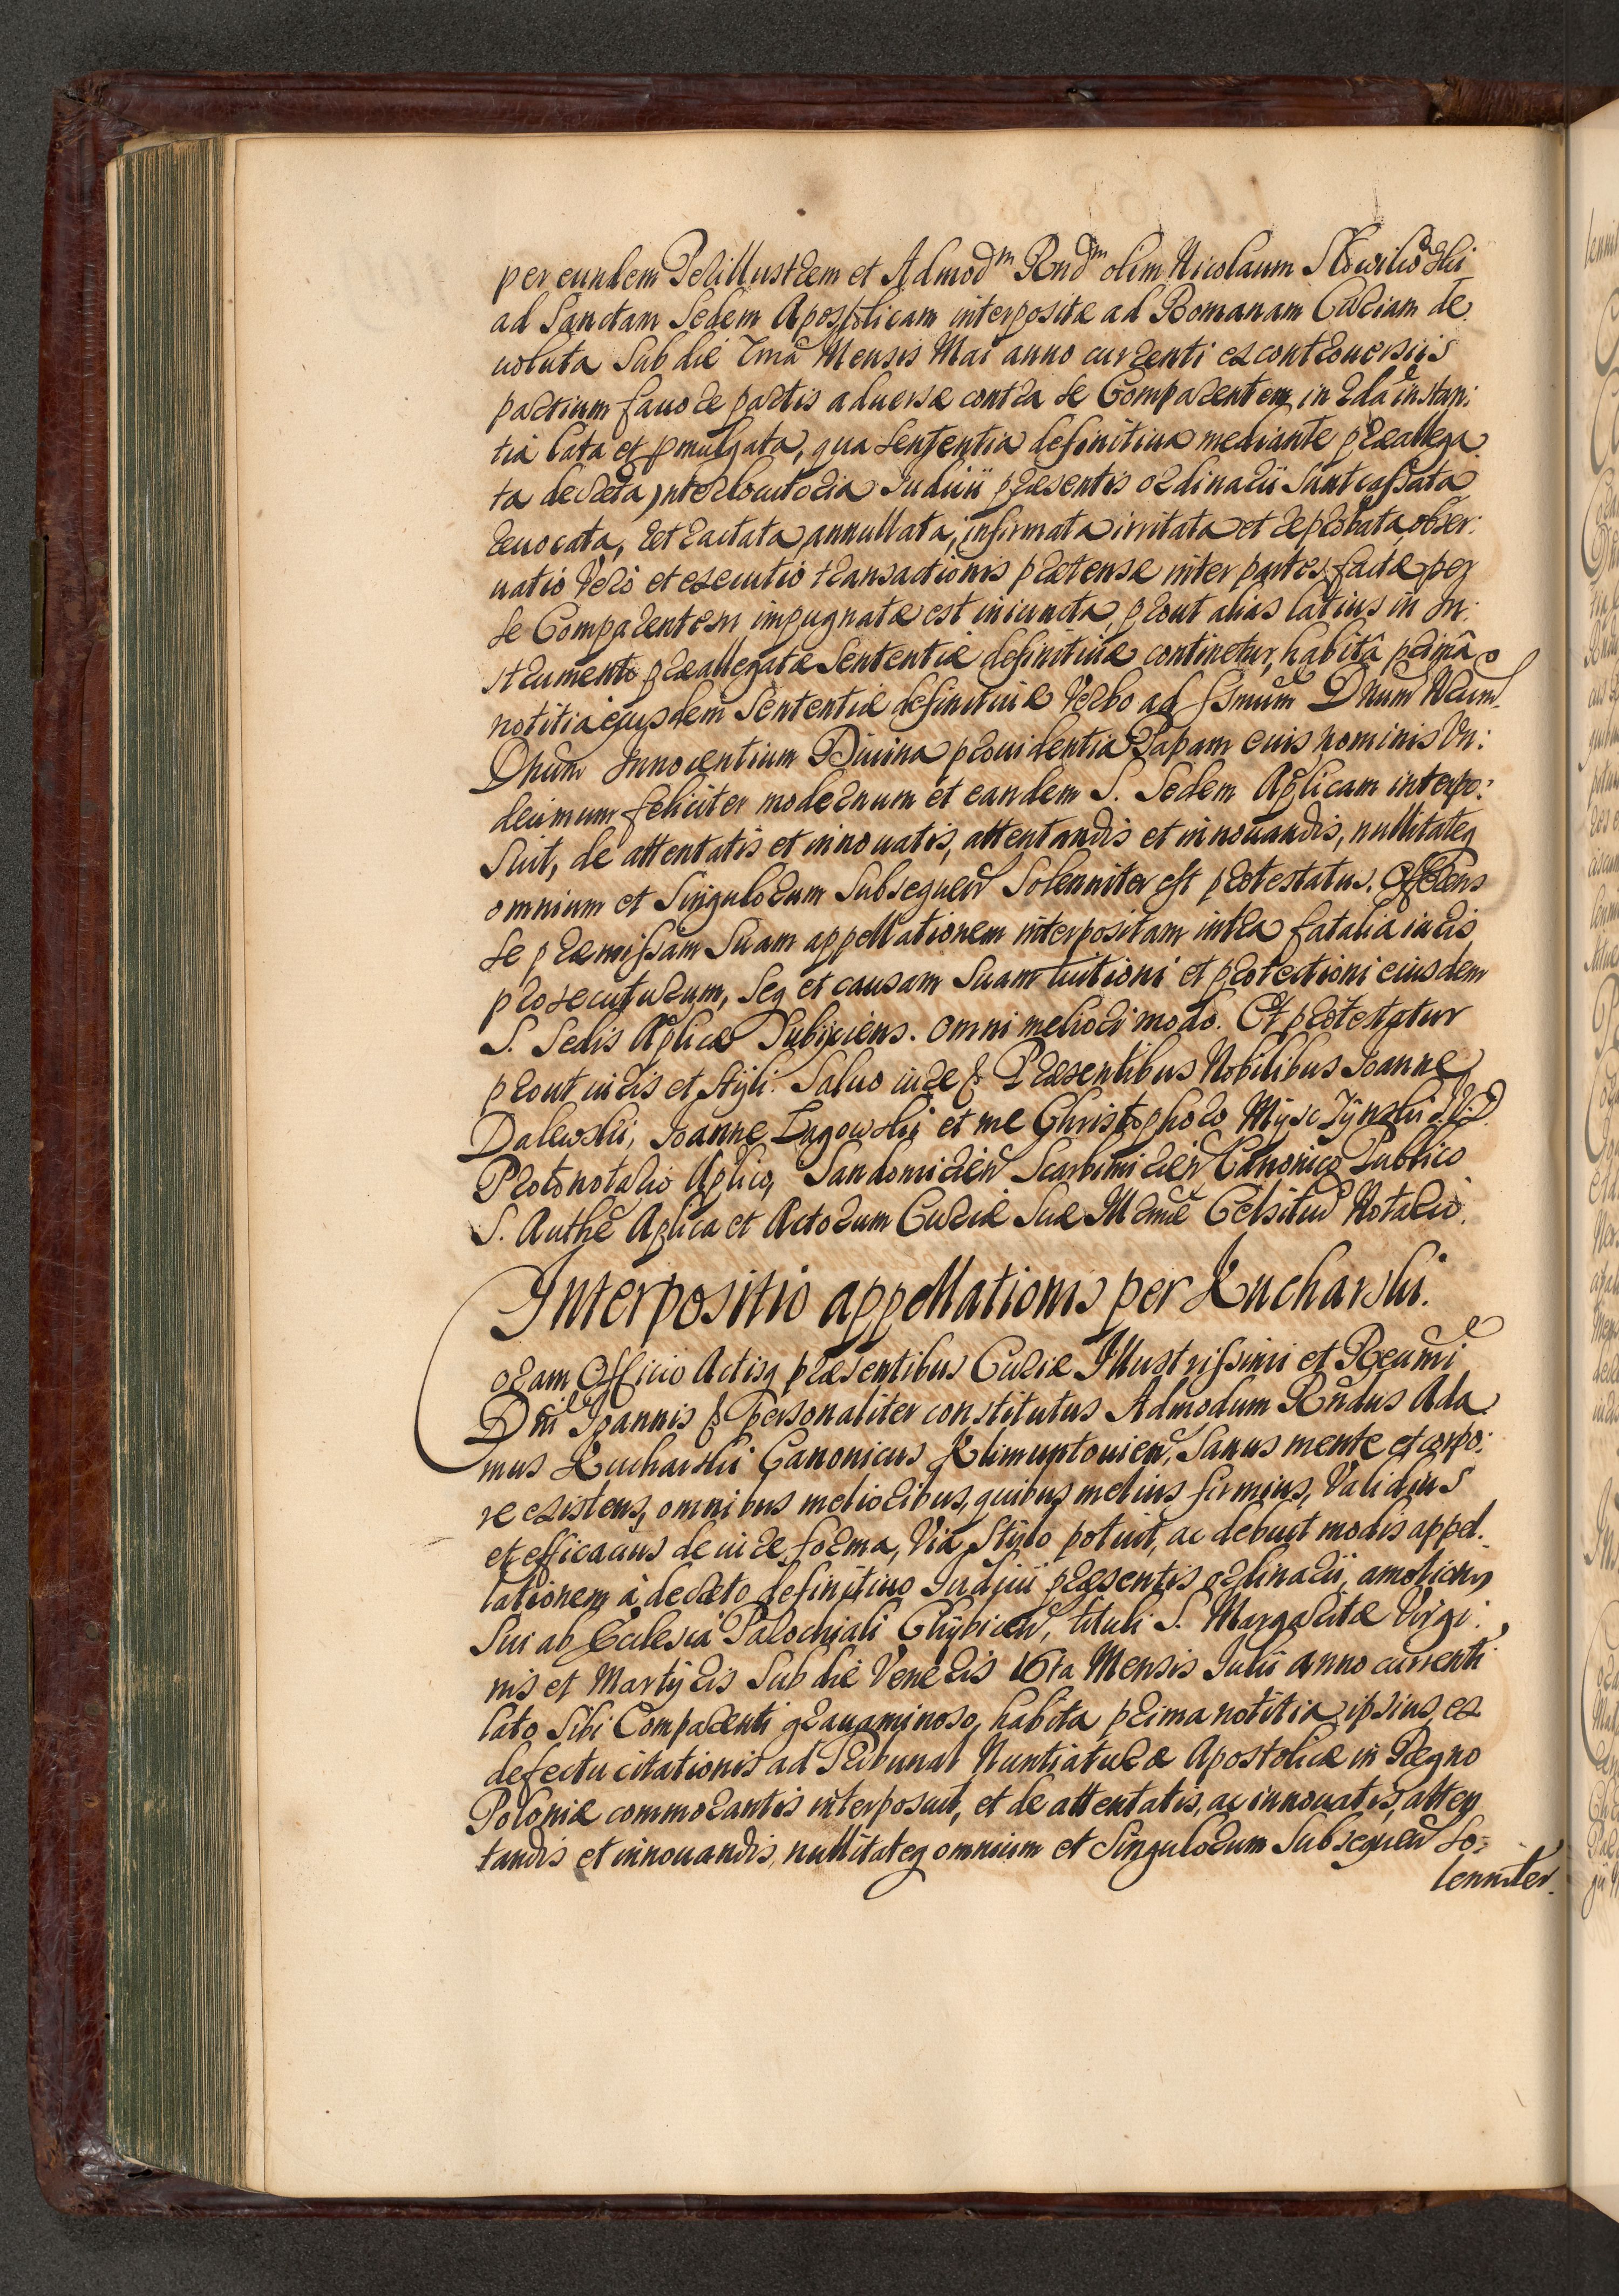 per eundem Perillustrem et Admodm Rndm olim Nicolaum Słowikowski
ad Sanctam Sedem Apostolicam interpositæ ad Romanam Curiam de
uoluta Sub die 7ma Mensis Mai anno currenti ex controuersiis
partium fauore partis aduersæ contra se Comparentem in 2da instan:
tia lata et pmulgata, qua sententia definitiua mediante præallega
ta decreta interlocutoria Judicii præsentis ordinarii Sunt cassata
reuocata, retractata annullata, infirmata irritata et reprobata, obser:
uatio Verò et executio transactionis prætensæ inter partes factæ per
se Comparentem impugnatæ est iniuncta, prout alias latius in In:
strumento præallegatæ Sententiæ definitiuæ continetur, habitâ primâ
notitia eiusdem Sententiæ definitiuæ Verbo ad Ssmum Dnum Nrum
Dnum Innocentium Diuina prouidentia Papam euis nominis Vn:
decimum feliciter modernum et eandem S. Sedem Aplicam interpo:
Suit, de attentatis et innouatis, attentandis et innouandis, nullitateq
omnium et Singulorum Subsequen Solenniter est protestatus. Offerens
se præmissam Suam appellationem interpositam intra fatalia iuris
prosecuturum, Seq et causam Suam tuitioni et protectioni eiusdem
S. Sedis Aplicæ Subijciens. omni meliori modo. Et protestatur
prout iuris et Styli. Saluo iure & Præsentibus Nobilibus Joanne
Dalewski, Joanne Łagowski et me Christophoro Mysczynski J.V.D.
Protonotario Aplico, Sandomirien Scarbimirien Canonico Publico
S. Authe Aplica et Actorum Curiæ Suæ Illrmæ Celsitud Notario.
Interpositio appellationis per Kucharski.
Coram Officio Actisq præsentibus Curiæ Illustrissimi et Reumi
Dni Joannis & personaliter constitutus Admodum Rndus Ada
mus Kucharski Canonicus Klimuntouien, Sanus mente et corpo:
re existens, omnibus melioribus, quibus melius firmius, Validius
et efficacius de iure, forma, Via, Stylo potuit, ac debuit modis appel
lationem à decreto definitiuo Judicii præsentis ordinarii, amotionis
Sui ab Ecclesia Parochiali Chybicen, tituli S. Margaritæ Virgi:
nis et Martyris Sub die Veneris 16ta Mensis Julii anno currenti
lato Sibi Comparenti grauaminoso, habita prima notitia ipsius, ex
defectu citationis ad Tribunal Nuntiaturæ Apostolicæ in Regno
Poloniæ commorantis interposuit, et de attentatis, ac innouatis, atten
tandis et innouandis, nullitateq omnium et Singulorum Subsequen So:
lenniter.